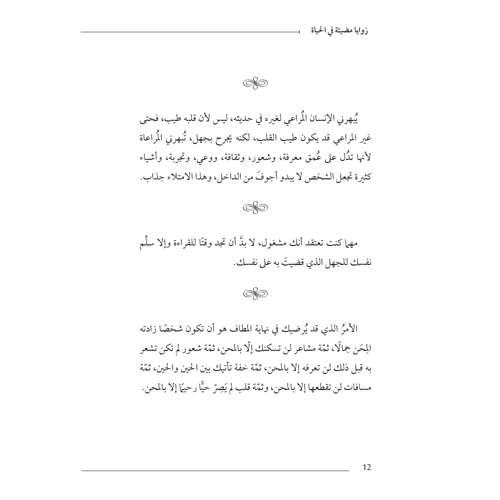 زوايا مضيئة في الحياة
يُبهرني الإنسان المُراعي لغيره في حديثه، ليس لأن قلبه طيب، فحتى
غير المراعي قد يكون طيب القلب، لكنه يجرح بجهل، تُبهرني المُراعاة
لأنها تدُل على عُمق معرفة، وشعور، وثقافة، ووعي، وتجربة، وأشياء
كثيرة تجعل الشخص لا يبدو أجوفَ من الداخل، وهذا الامتلاء جذاب.
مهما كنت تعتقد أنك مشغول، لا بدَّ أن تجد وقتًا للقراءة وإلا سلَّم
نفسك للجهل الذي قضيتَ به على نفسك.
الأمرُ الذي قد يُرضيك في نهاية المطاف هو أن تكون شخصًا زادته
المِحَن جمالًا، ثمّة مشاعر لن تسكنك إلّا بالمحن، ثمّة شعور لم تكن تشعر
به قبل ذلك لن تعرفه إلا بالمحن، ثمّة خفة تأتيك بين الحين والحين، ثمّة
مسافات لن تقطعها إلا بالمحن، وثمّة قلب لم يَصِرْ حيًّا رحيمًا إلا بالمحن.
12